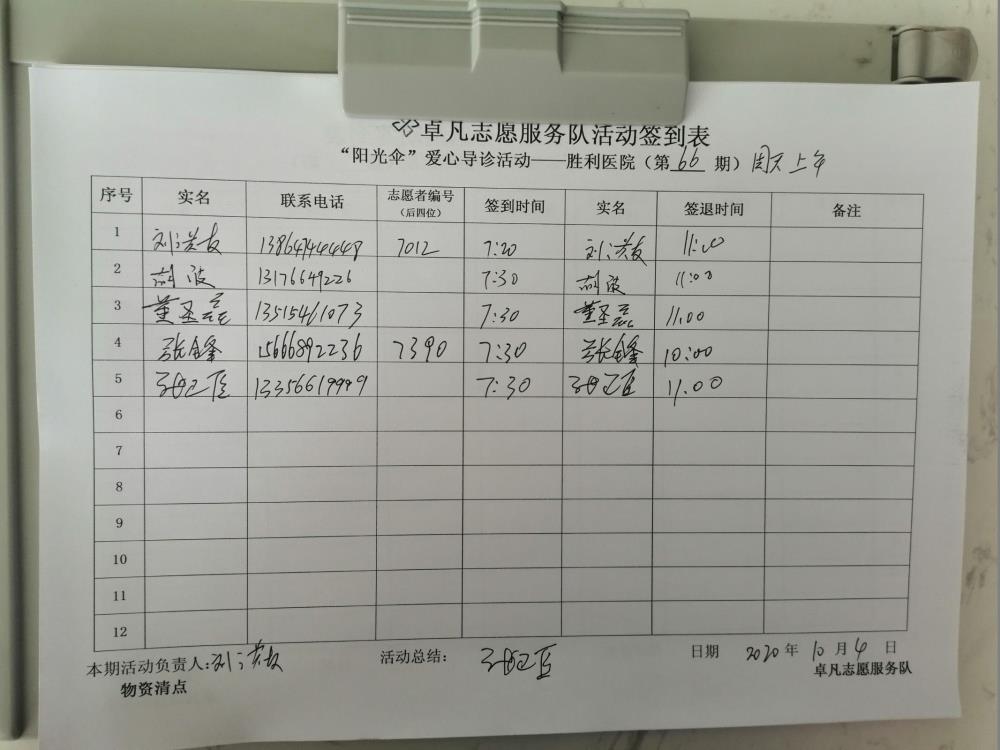 卓凡志愿服务队活动签到表
“阳光伞”爱心导诊活动——胜利医院（第 66 期）周天上午
序号 实名 联系电话 志愿者编号（后四位） 签到时间 实名 签退时间 备注
1 刘洪友 13864744448 7012 7:20 刘洪友 11:00
2 胡波 13176649226 7:30 胡波 11:00
3 董圣磊 13515461073 7:30 董圣磊 11:00
4 张金峰 15666892236 7390 7:30 张金峰 10:00
5 13356619999 7:30 11:00
6
7
8
9
10
11
12
本期活动负责人:刘洪友 活动总结: 日期 2020 年 10 月 4 日
物资清点 卓凡志愿服务队